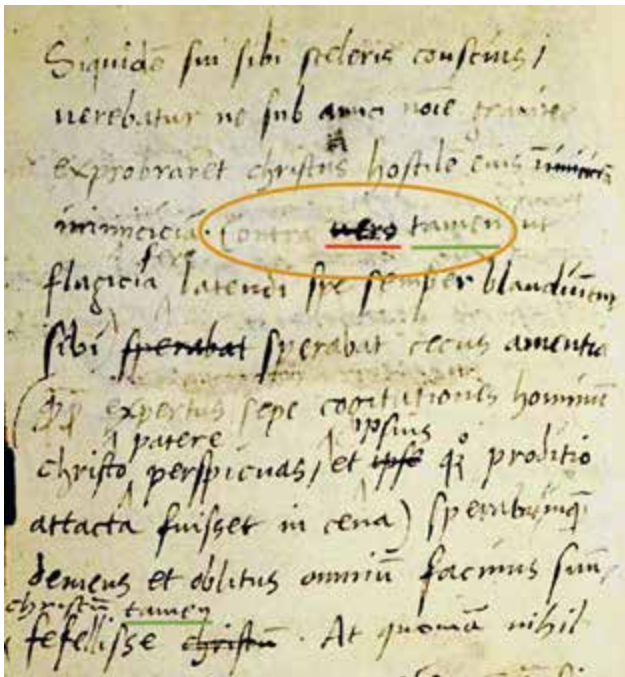 Siquidē sui sibi sceleris conscius /
uerebatur ne sub amici noīe grauiter
exprobraret christus hostilē eius
inimiciciā. Contra uero tamen ut
fere
flagicia latendi spe semper blandiuntur
sibi sperabat sperabat cecus amentia
expertus sepe cogitationes hominum
patere ipsius
christo perspicuas / et ipse proditio
attacta fuisset in cena)
demens et oblitus omniū facinus suum
christū tamen
fefellisse christū. At quoniā nihil